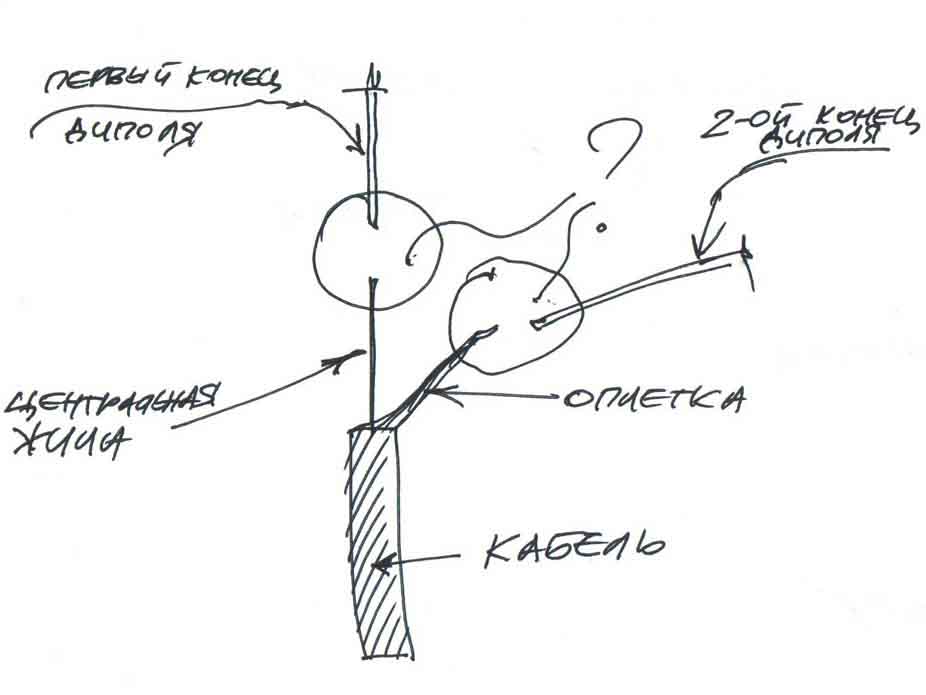 ПЕРВЫЙ КОНЕЦ
ДИПОЛЯ
?
2-ОЙ КОНЕЦ
ДИПОЛЯ
ЦЕНТРАЛЬНАЯ
ЖИЛА
ОПЛЕТКА
КАБЕЛЬ